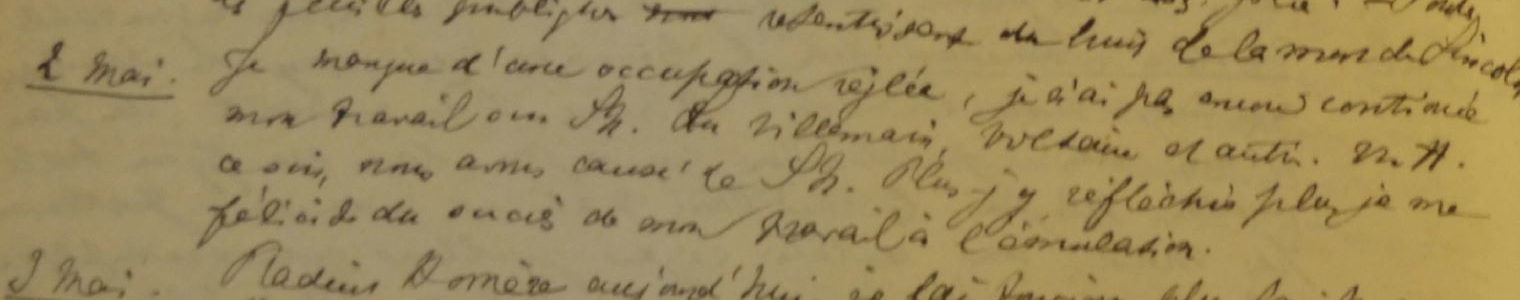 les feuilles publiques retentissent du bruit de la mort de Lincoln
2 Mai. Je manque d'une occupation réglée, je n'ai pas encore continué
mon travail sur Sh. Lu Villemain, Voltaire et autr. V. H.
ce soir, nous avons causé de Sh. Plus j'y réfléchis plus je me
félicite du succès de mon travail à l'émulation.
3 Mai. Homère aujourd'hui je